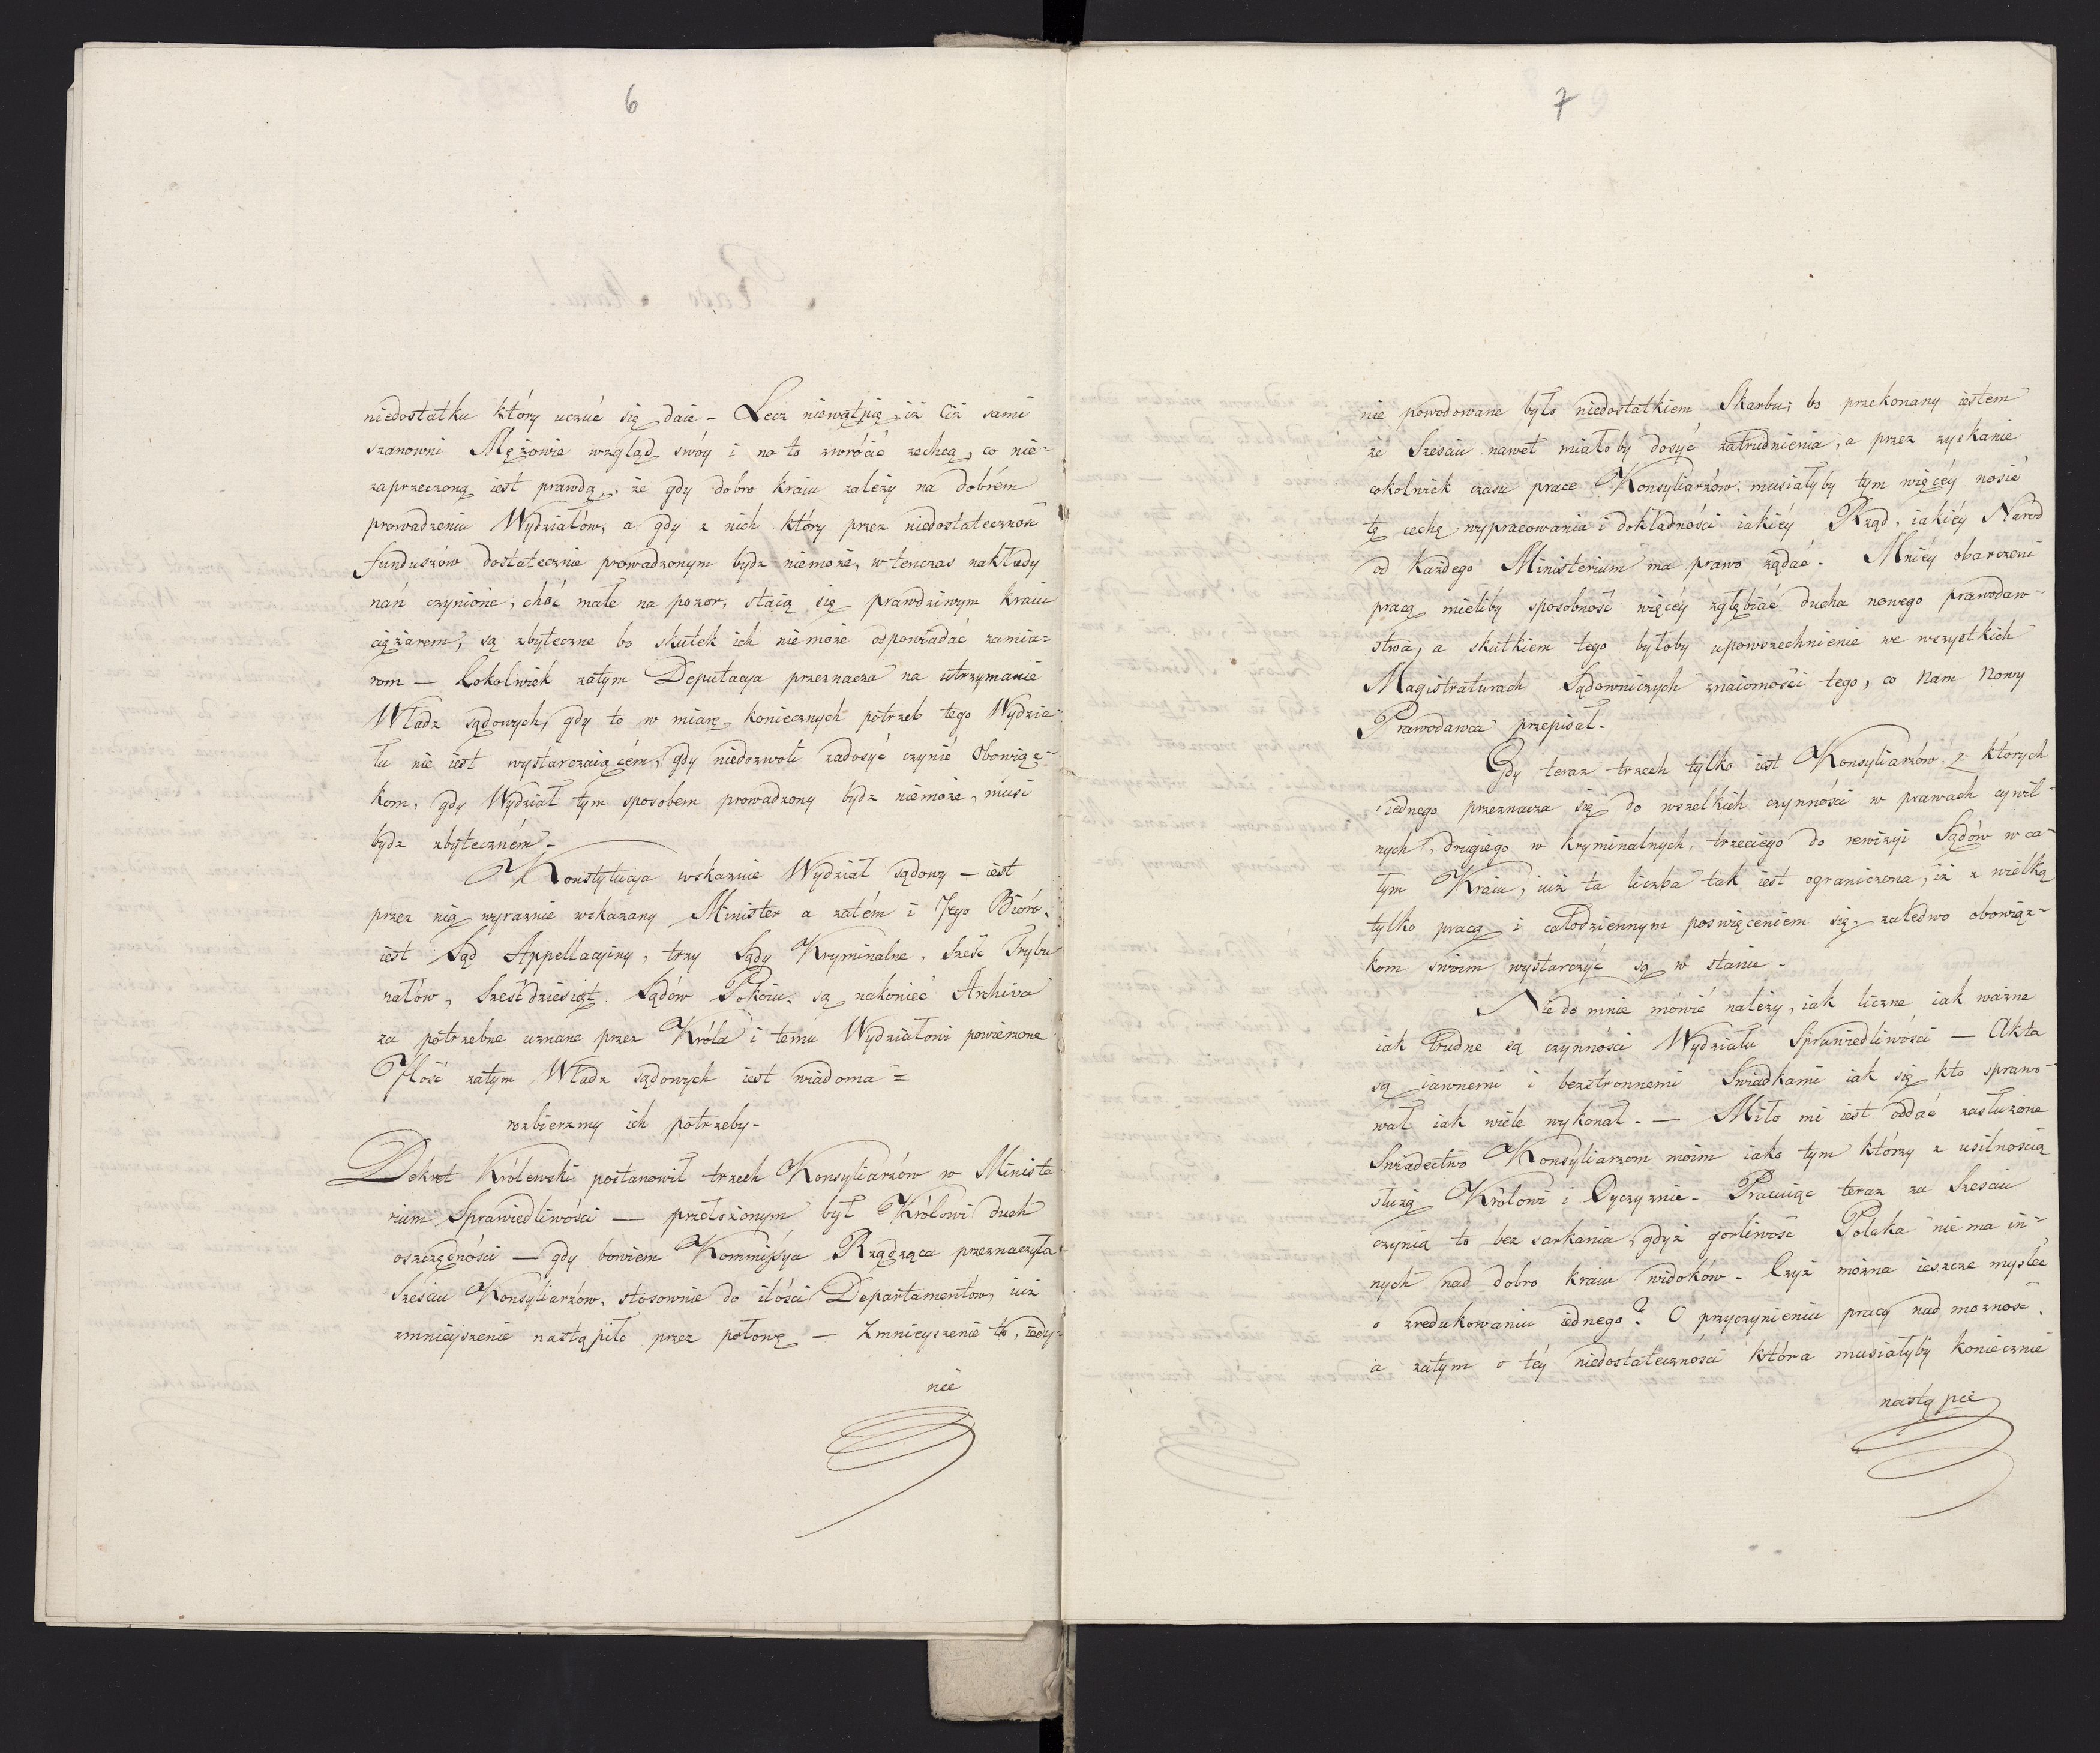 6
niedostatku który uczuć się daie - Lecz niewątpię iż Ciż sami
szanowni Mężowie wzgląd swóy i na to zwrócić zechcą, co nie-
zaprzeczoną iest prawdą, że gdy dobro kraiu zależy na dobrém
prowadzeniu Wydziałów, a gdy z nich który przez niedostateczność
funduszów dostatecznie prowadzonym bydz niemoże, wtenczas nakłady
nań czynione, choć małe na pozor, staią się prawdziwym kraiu
ciężarem, są zbyteczne bo skutek ich niemoże odpowiadać zamia=
rom — Cokolwiek zatym Deputacya przeznacza na utrzymanie
Władz sądowych, gdy to w miarę koniecznych potrzeb tego Wydzia-
łu nie iest wystarczaiącém, gdy niedozwoli zadosyć czynić obowiąz-
kom, gdy Wydział tym sposobem prowadzony bydz niemoże, musi
bydz zbyteczném -
Konstytucya wskazuie Wydział sądowy — iest
przez nię wyraznie wskazany Minister a zatém i Jego Bióro,
iest Sąd Appellacyiny, trzy Sądy Kryminalne, sześć Trybu
nałów, sześćdziesiąt Sądów Pokoiu, są nakoniec Archiva
za potrzebne uznane przez Króla i temu Wydziałowi powierzone
Ilość zatym Władz sądowych iest wiadoma =
rozbierzmy ich potrzeby -
Dekret Królewski postanowił trzech Konsyliarzów w Ministe
rium Sprawiedliwości — przełożonym był Królowi duch
oszczędności — gdy bowiem Kommissya Rządząca przeznaczyła
sześciu Konsyliarzów, stosownie do ilości Departamentów, iuż
zmnieyszenie nastąpiło przez połowę — Zmnieyszenie to, iedy=
nie
7
nie powodowane było niedostatkiem Skarbu; bo przekonany iestem
że sześciu nawet miałoby dosyć zatrudnienia, a przez zyskanie
cokolwiek czasu prace Konsyliarzów, musiałyby tym więcéy nosić
tę cechę wypracowania i dokładności iakiéy Rząd, iakiéy Narod
od każdego Ministerium ma prawo żądać - Mniéy obarczeni
pracą mieliby sposobność więcéy zgłębiać ducha nowego prawodaw-
stwa, a skutkiem tego byłoby upowszechnienie we wszystkich
Magistraturach Sądowniczych znaiomości tego, co Nam Nowy
Prawodawca przepisał -
Gdy teraz trzech tylko iest Konsyliarzów z których
iednego przeznacza się do wszelkich czynności w prawach cywil-
nych, drugiego w kryminalnych, trzeciego do rewizyi Sądów w ca-
łym Kraiu, iuż ta liczba tak iest ograniczona, iż z wielką
tylko pracą i całodziennym poswięceniem się, zaledwo obowiąz-
kom swoim wystarczyć są w stanie -
Nie do mnie mówić należy, iak liczne iak ważne
iak trudne są czynności Wydziału Sprawiedliwości — Akta
są iawnemi i bezstronnemi Swiadkami iak się kto sprawo-
wał iak wiele wykonał - — Miło mi iest oddać zasłużone
Swiadectwo Konsyliarzom moim iako tym którzy z usilnością
służą Królowi i Oyczyznie - Pracuiąc teraz za sześciu
czynią to bez sarkania, gdyż gorliwość Polaka nie ma in-
nych nad dobro kraiu widoków - Czyż można ieszcze mysleć
o zredukowaniu iednego? O przyczynieniu pracy nad możność,
a zatym o téy niedostateczności która musiałyby koniecznie
nastąpić